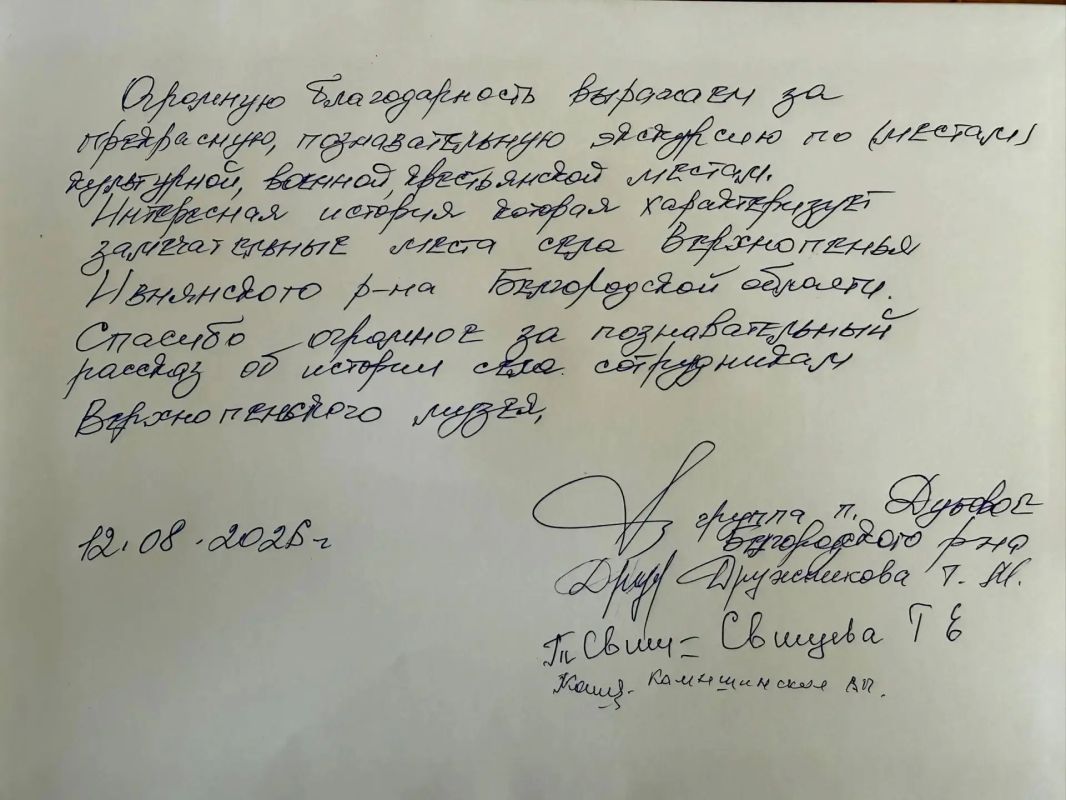 Огромную благодарность выражаем за
прекрасную, познавательную экскурсию по (местам)
культурной, военной, крестьянской местам.
Интересная история которая характеризует
замечательные места села Верхнопенья
Ивнянского р-на Белгородской области.
Спасибо огромное за познавательный
рассказ об истории села сотрудникам
Верхнопенского музея,
12.08.2025г
группа п. Дубовое
Белгородского р-на
Дружникова Т. Н.
Свищева Т Е
Камышинская ВП.